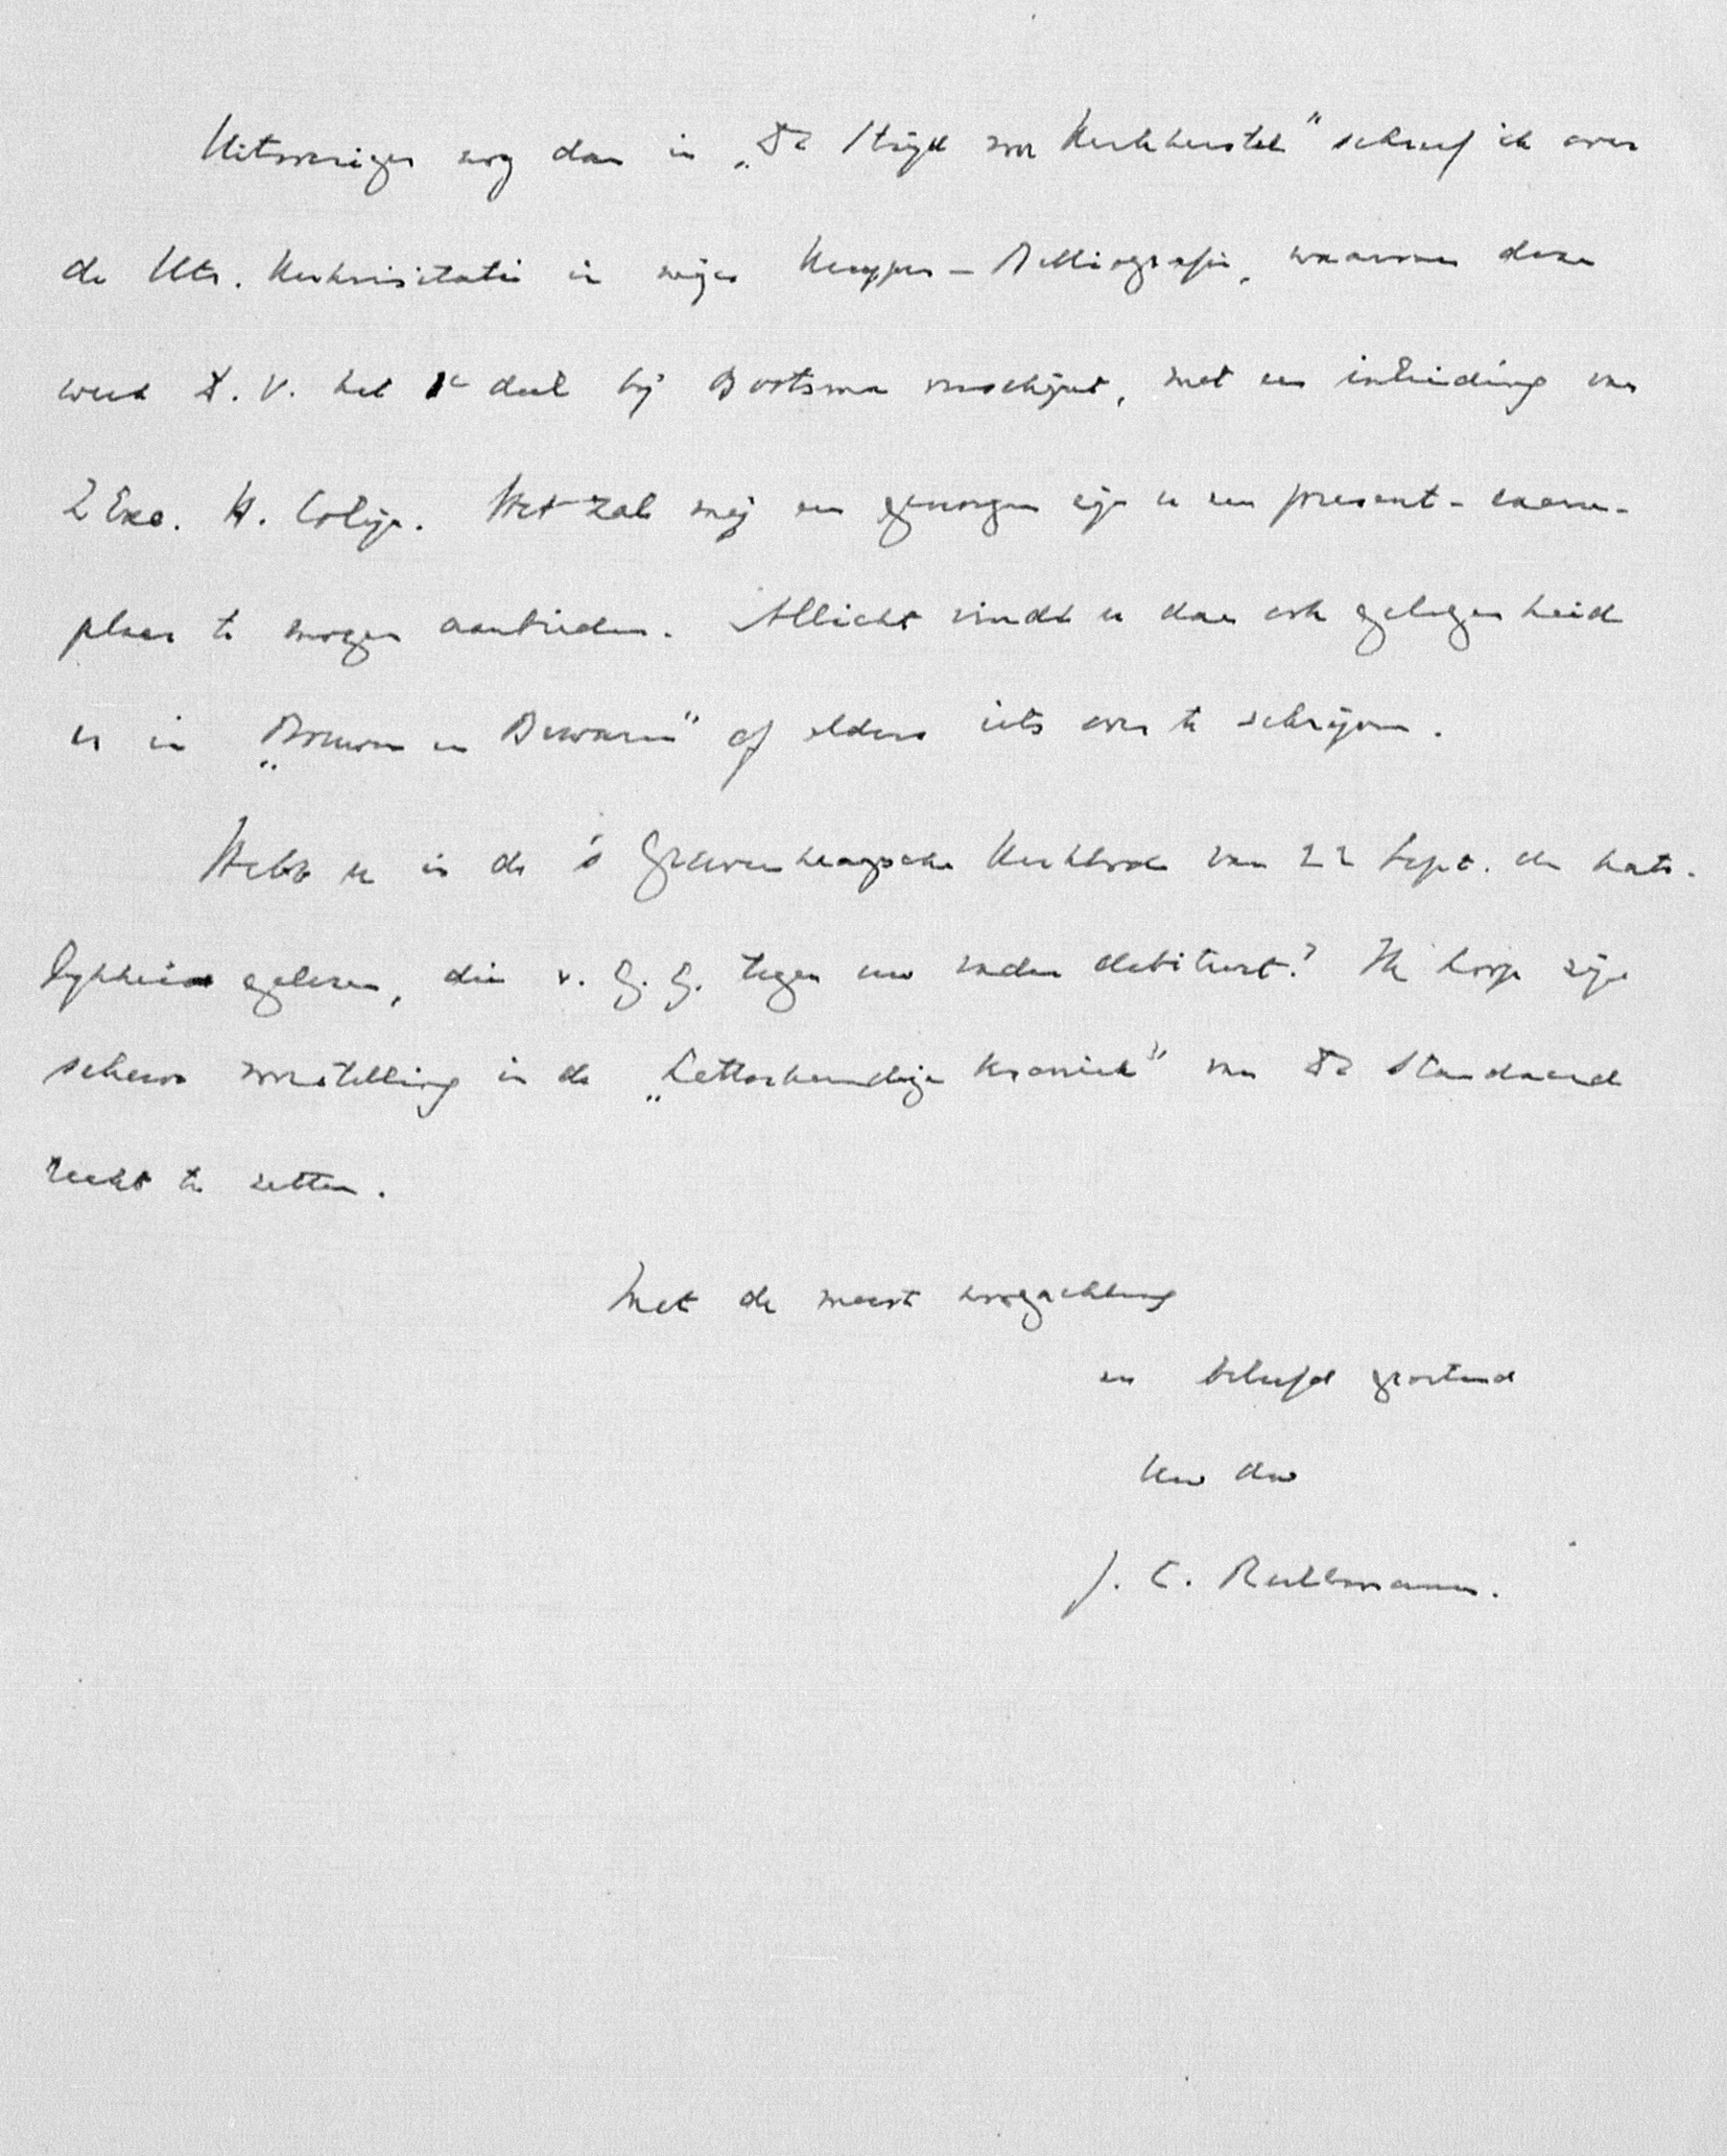 Uitvoeriger nog dan in „De Strijd voor Kerkherstel" schreef ik over
de Utr. Kerkvisitatie in mijn Kuyper-Bibliografie, waarvan deze
week D.V. het 1e deel bij Bootsma verschijnt, met een inleiding van
Z Exc. H. Colijn. Het zal mij een genoegen zijn u een present-exem-
plaar te mogen aanbieden. Allicht vindt u dan ook gelegenheid
er in „Bouwen en Bewaren" of elders iets over te schrijven.
Hebt u in de 's Gravenhaagsche Kerkbode van 22 Sept. de hate-
lijkheid gelezen, die v. G. G. tegen uw vader debiteert? Ik hoop zijn
scheve voorstelling in de „Letterkundige Kroniek" van De Standaard
recht te zetten.
Met de meeste hoogachting
en beleefd groetend
Uw dw
J. C. Rullmann.